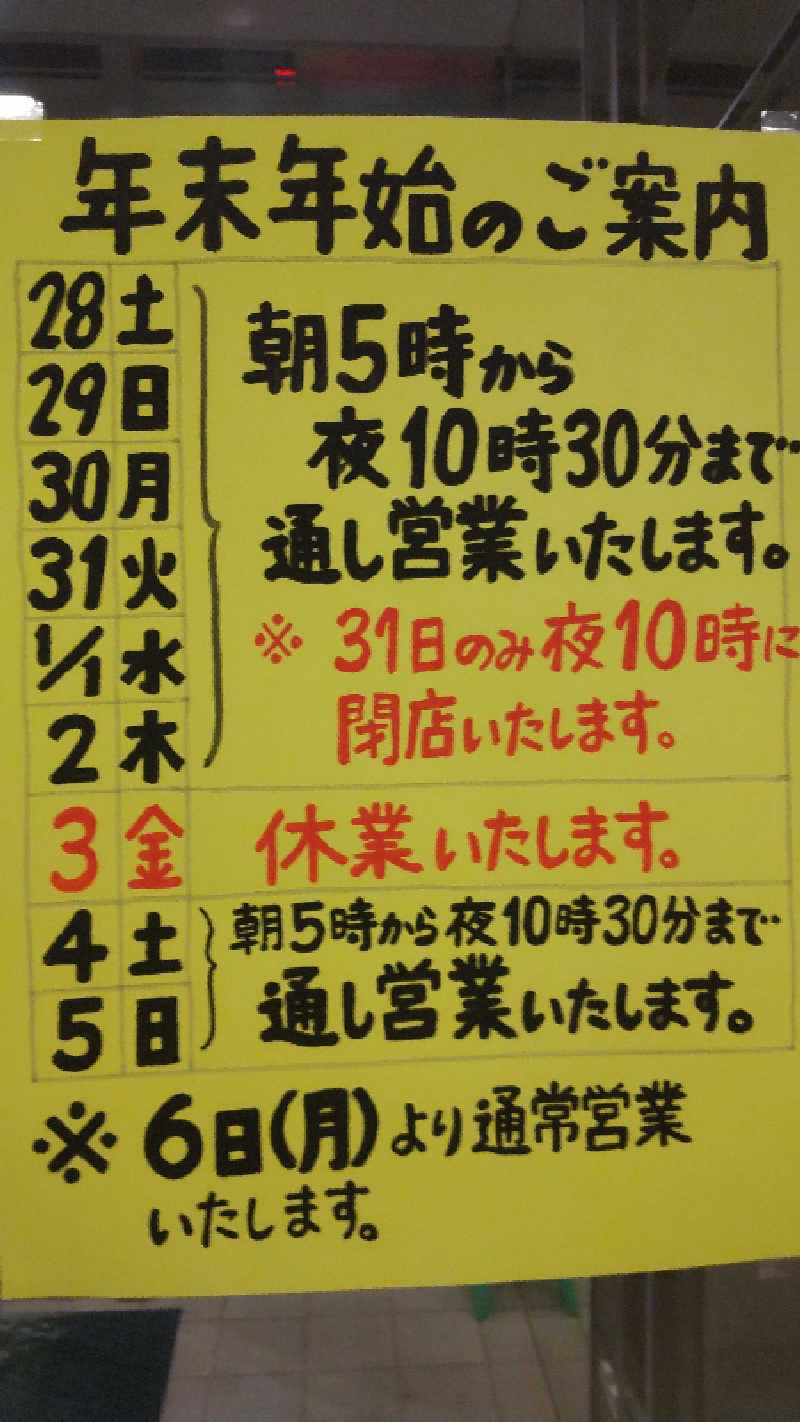 年末年始のご案内
28 土
29 日
30 月
31 火
1/1 水
2 木
朝5時から
夜10時30分まで
通し営業いたします。
※ 31日のみ夜10時に
閉店いたします。
3 金 休業いたします。
4 土
5 日
朝5時から夜10時30分まで
通し営業いたします。
※ 6日(月)より通常営業
いたします。